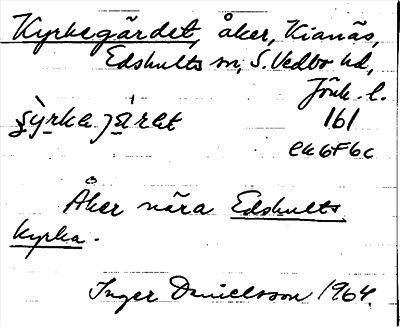 Kyrkegärdet, åker, Kianäs,
Edshults sn, S. Vedbo hd,
Jönk. l.
161
ek 6F6c
Åker nära Edshults
kyrka.
Inger Danielsson 1964.